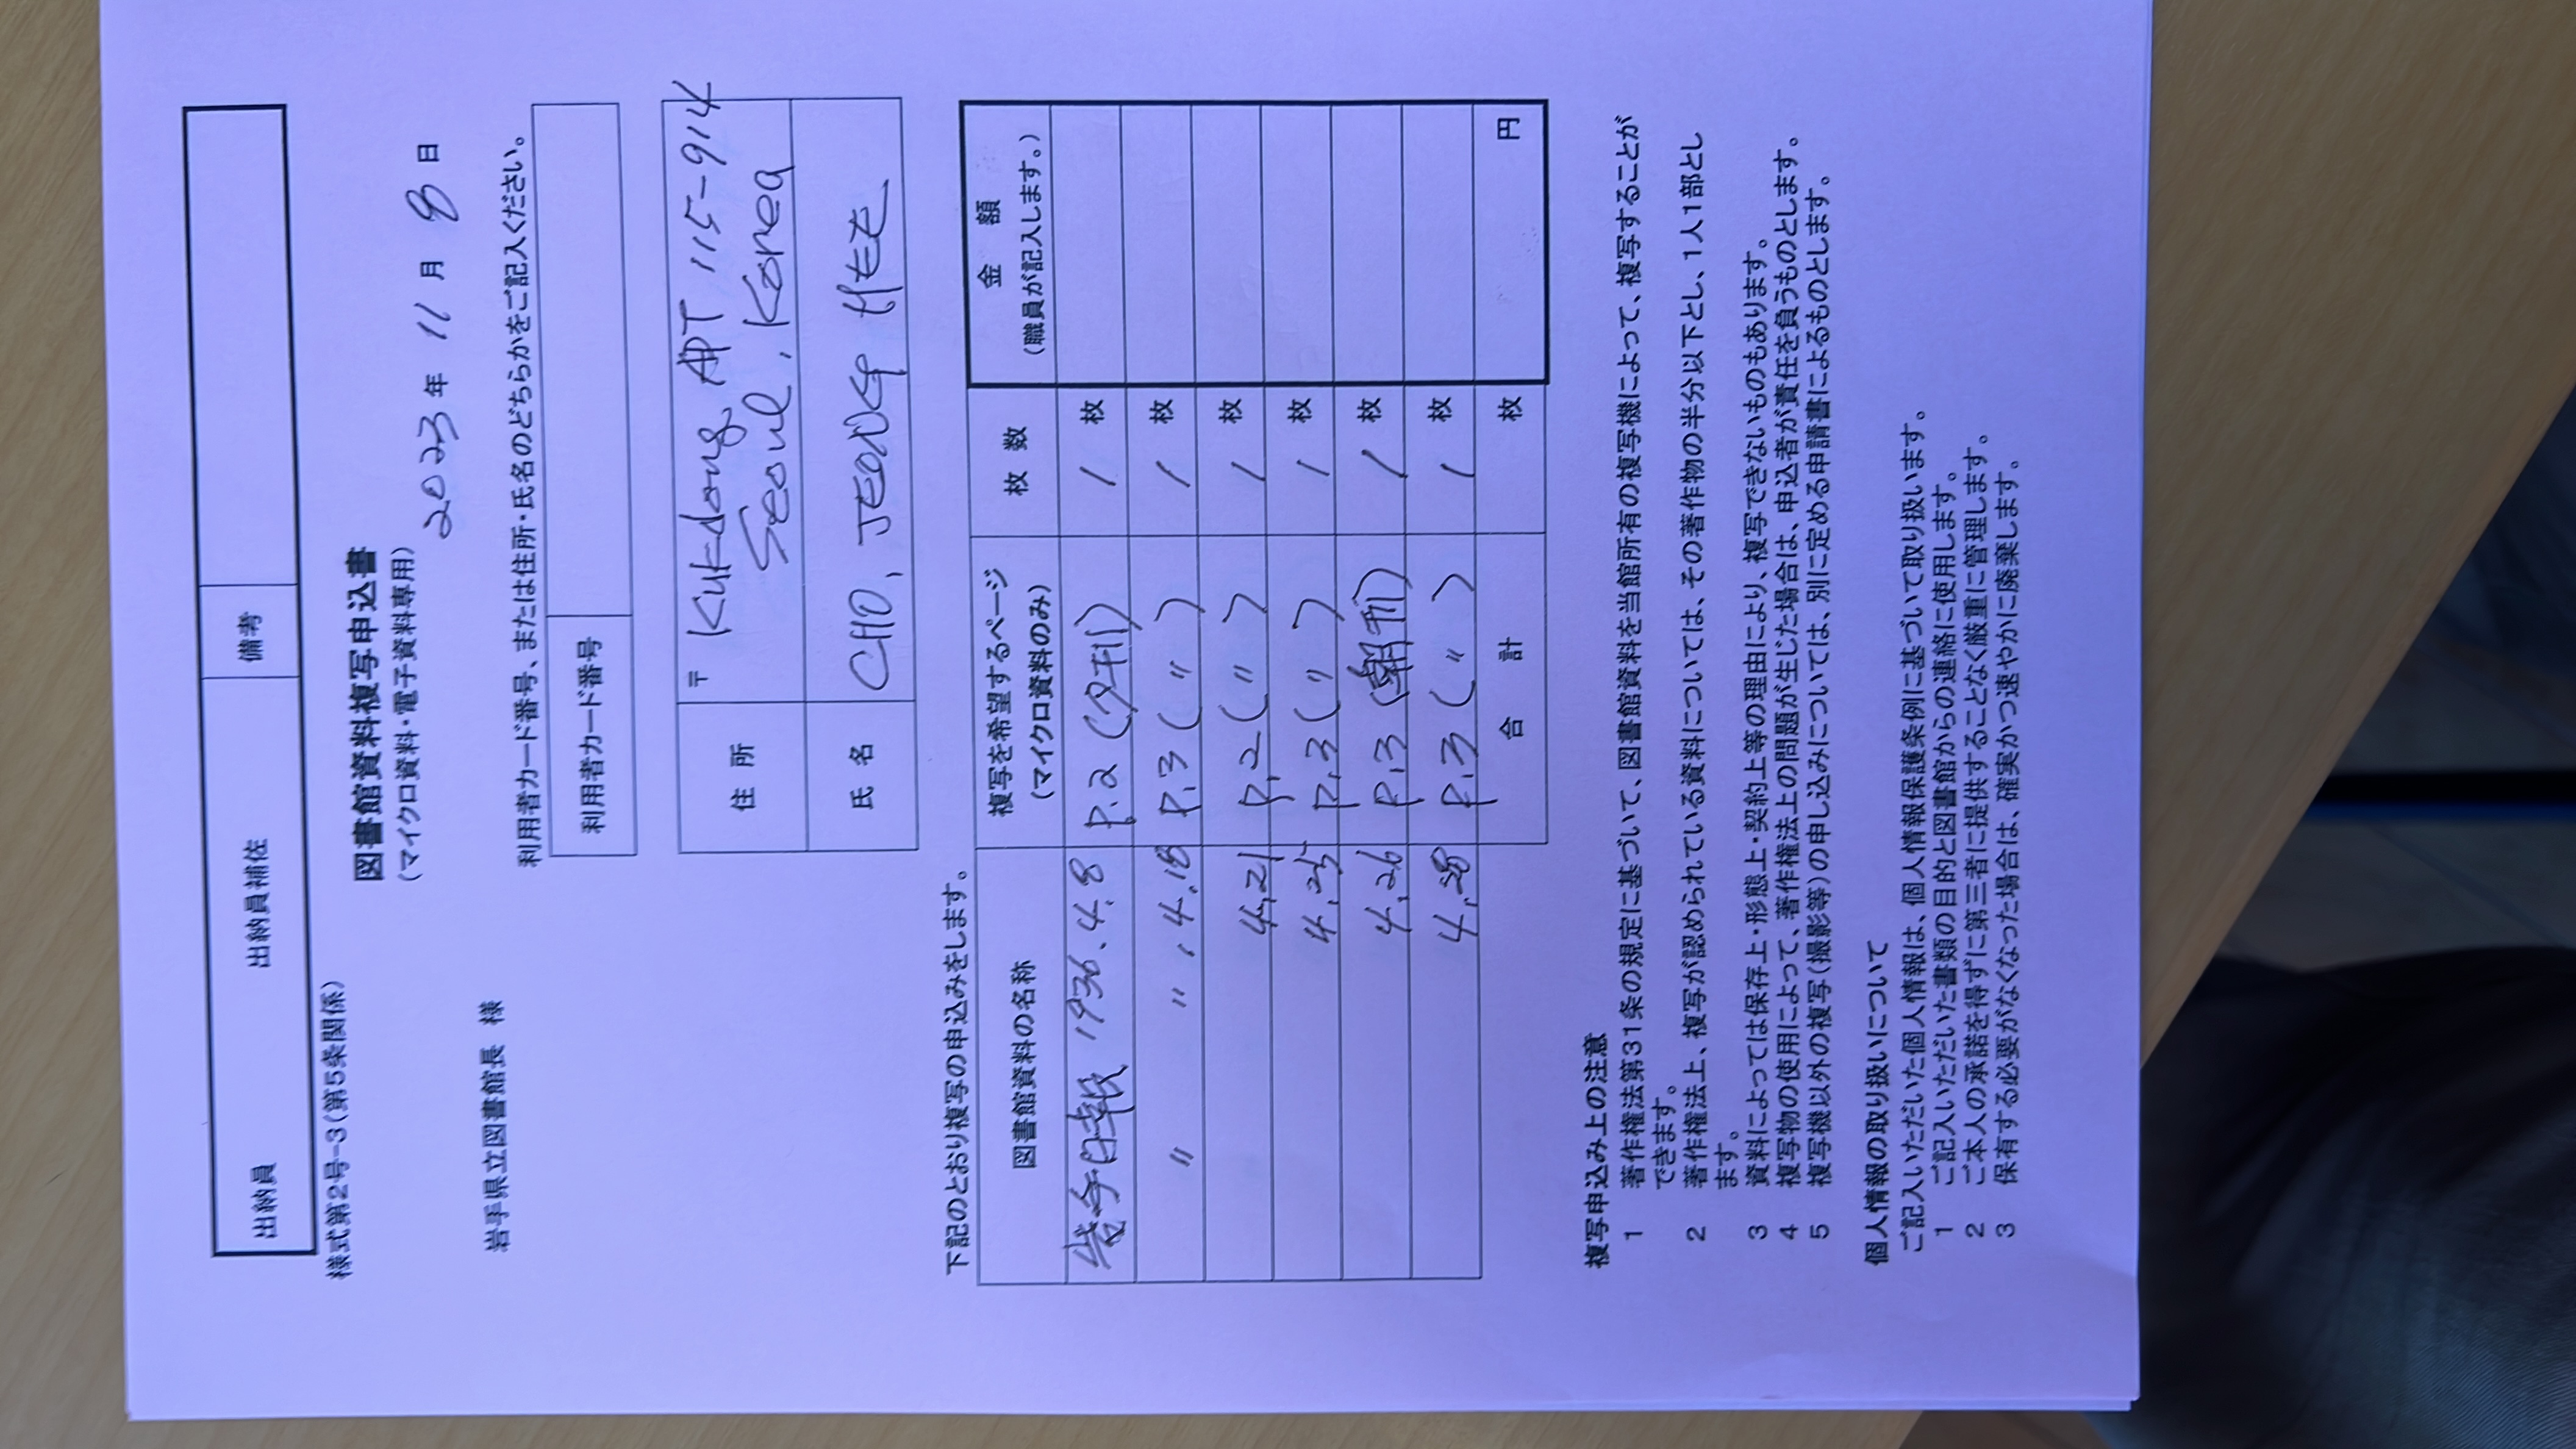 出納員 出納員補佐 備考
様式第2号-3(第5条関係)
図書館資料複写申込書
(マイクロ資料・電子資料専用)
2023年 11月 8日
岩手県立図書館長 様
利用者カード番号、または住所・氏名のどちらかをご記入ください。
利用者カード番号
住所 〒 Kui-dong, APT 115-914
Seoul, Korea
氏名 CHO, JEONG HEE
下記のとおり複写の申込みをします。
図書館資料の名称 複写を希望するページ 枚数 金額
(マイクロ資料のみ) (職員が記入します。)
岩手日報 1936.4.8 P.2(夕刊) 1枚
〃 〃.4.18 P.3(〃) 1枚
4.21 P.2(〃) 1枚
4.25 P.3(〃) 1枚
4.26 P.3(朝刊) 1枚
4.28 P.3(〃) 1枚
合計 枚 円
複写申込み上の注意
1 著作権法第31条の規定に基づいて、図書館資料を当館所有の複写機によって、複写することが
できます。
2 著作権法上、複写が認められている資料については、その著作物の半分以下とし、1人1部とし
ます。
3 資料によっては保存上・形態上・契約上等の理由により、複写できないものもあります。
4 複写物の使用によって、著作権法上の問題が生じた場合は、申込者が責任を負うものとします。
5 複写機以外の複写(撮影等)の申し込みについては、別に定める申請書によるものとします。
個人情報の取り扱いについて
ご記入いただいた個人情報は、個人情報保護条例に基づいて取り扱います。
1 ご記入いただいた書類の目的と図書館からの連絡に使用します。
2 ご本人の承諾を得ずに第三者に提供することなく厳重に管理します。
3 保有する必要がなくなった場合は、確実かつ速やかに廃棄します。